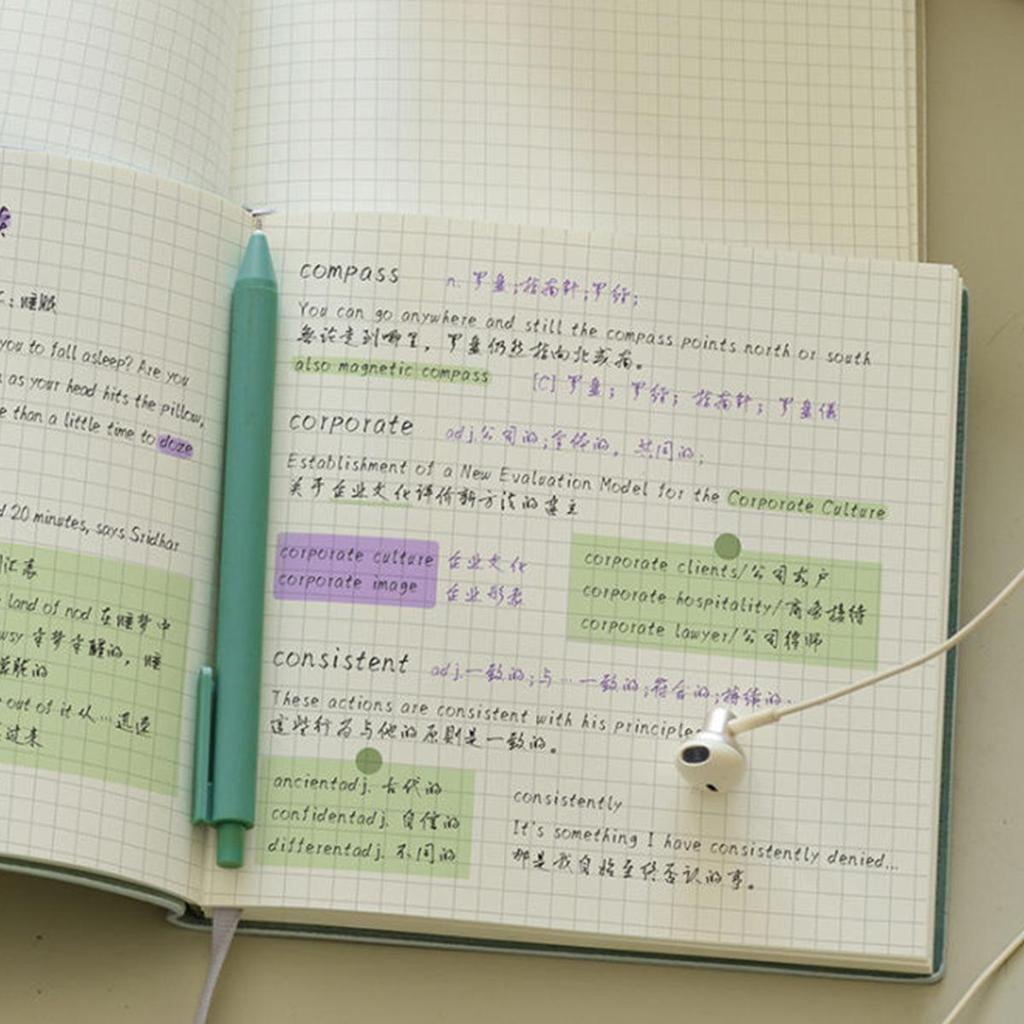 you to fall asleep? Are you
as your head hits the pillow,
than a little time to doze
20 minutes, says Sridhar
汇总
land of nod 在睡梦中
半梦半醒的，睡
out of it 从…逃避
过来
compass n. 罗盘；指南针；罗经；
You can go anywhere and still the compass points north or south
无论走到哪里，罗盘仍然指向北或南。
also magnetic compass [C] 罗盘；罗经；指南针；罗盘仪
corporate adj.公司的；全体的，共同的；
Establishment of a New Evaluation Model for the Corporate Culture
关于企业文化评价新方法的建立
corporate culture 企业文化
corporate image 企业形象
corporate clients/公司客户
corporate hospitality/商务接待
corporate lawyer/公司律师
consistent adj.一致的；与…一致的；符合的；持续的…
These actions are consistent with his principles
这些行为与他的原则是一致的。
ancientadj. 古代的
confidentadj. 自信的
differentadj. 不同的
consistently
It's something I have consistently denied...
那是我自始至终否认的事。